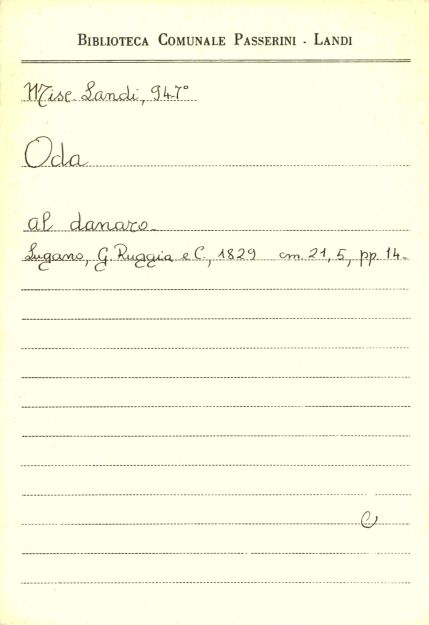 BIBLIOTECA COMUNALE PASSERINI - LANDI
Misc. Landi, 947°
Oda
al danaro.
Lugano, G. Ruggia e C., 1829 cm. 21,5, pp. 14.
C